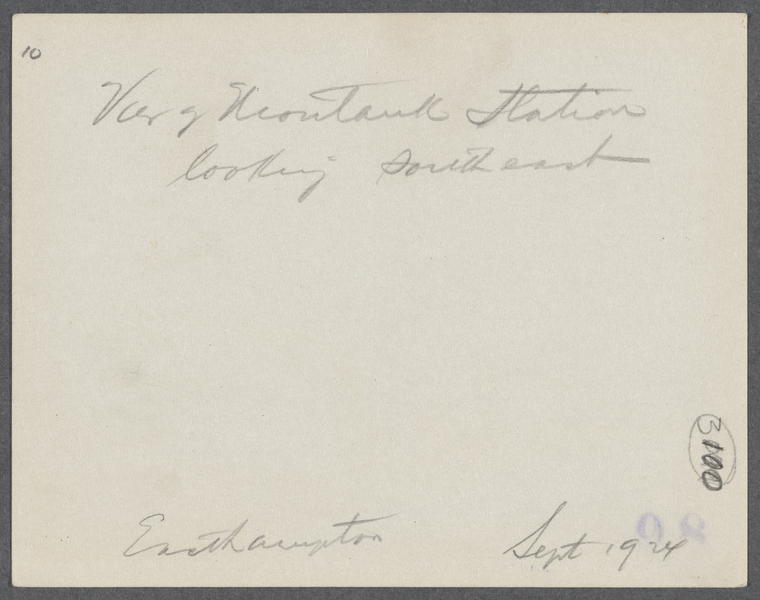 10
View of Montauk Station
looking southeast
3100
98
Easthampton
Sept 1924